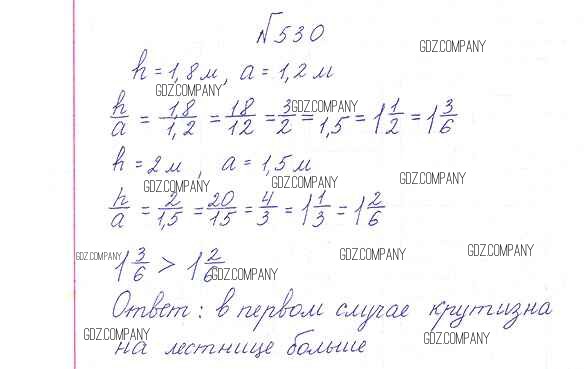 №530
GDZ.COMPANY
h = 1,8 м, a = 1,2 м
GDZ.COMPANY
h/a = 1,8/1,2 = 18/12 = 3/2 = 1,5 = 1 1/2 = 1 3/6
GDZ.COMPANY
h = 2 м, a = 1,5 м
GDZ.COMPANY GDZ.COMPANY GDZ.COMPANY
h/a = 2/1,5 = 20/15 = 4/3 = 1 1/3 = 1 2/6
GDZ.COMPANY GDZ.COMPANY GDZ.COMPANY
1 3/6 > 1 2/6
GDZ.COMPANY
Ответ: в первом случае крутизна
GDZ.COMPANY GDZ.COMPANY
на лестнице больше